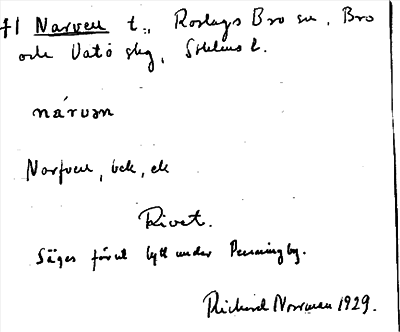 fl Narven t., Roslags Bro sn, Bro
och Vätö skg, Sthlms l.
närvən
Norfven, bek, ek
Rivet.
Säges förut lytt under Penningby.
Richard Norrman 1929.